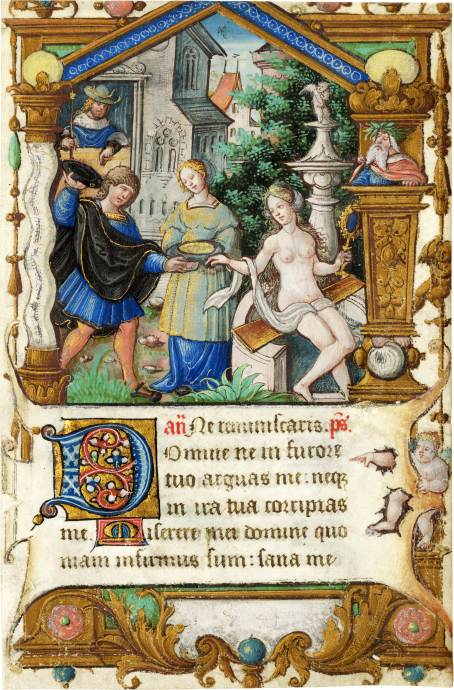 añ Ne reminiscaris. ps̃.
Domine ne in furore
tuo arguas me: neqz
in ira tua corripias
me. Miserere mei domine quo
niam infirmus sum: sana me